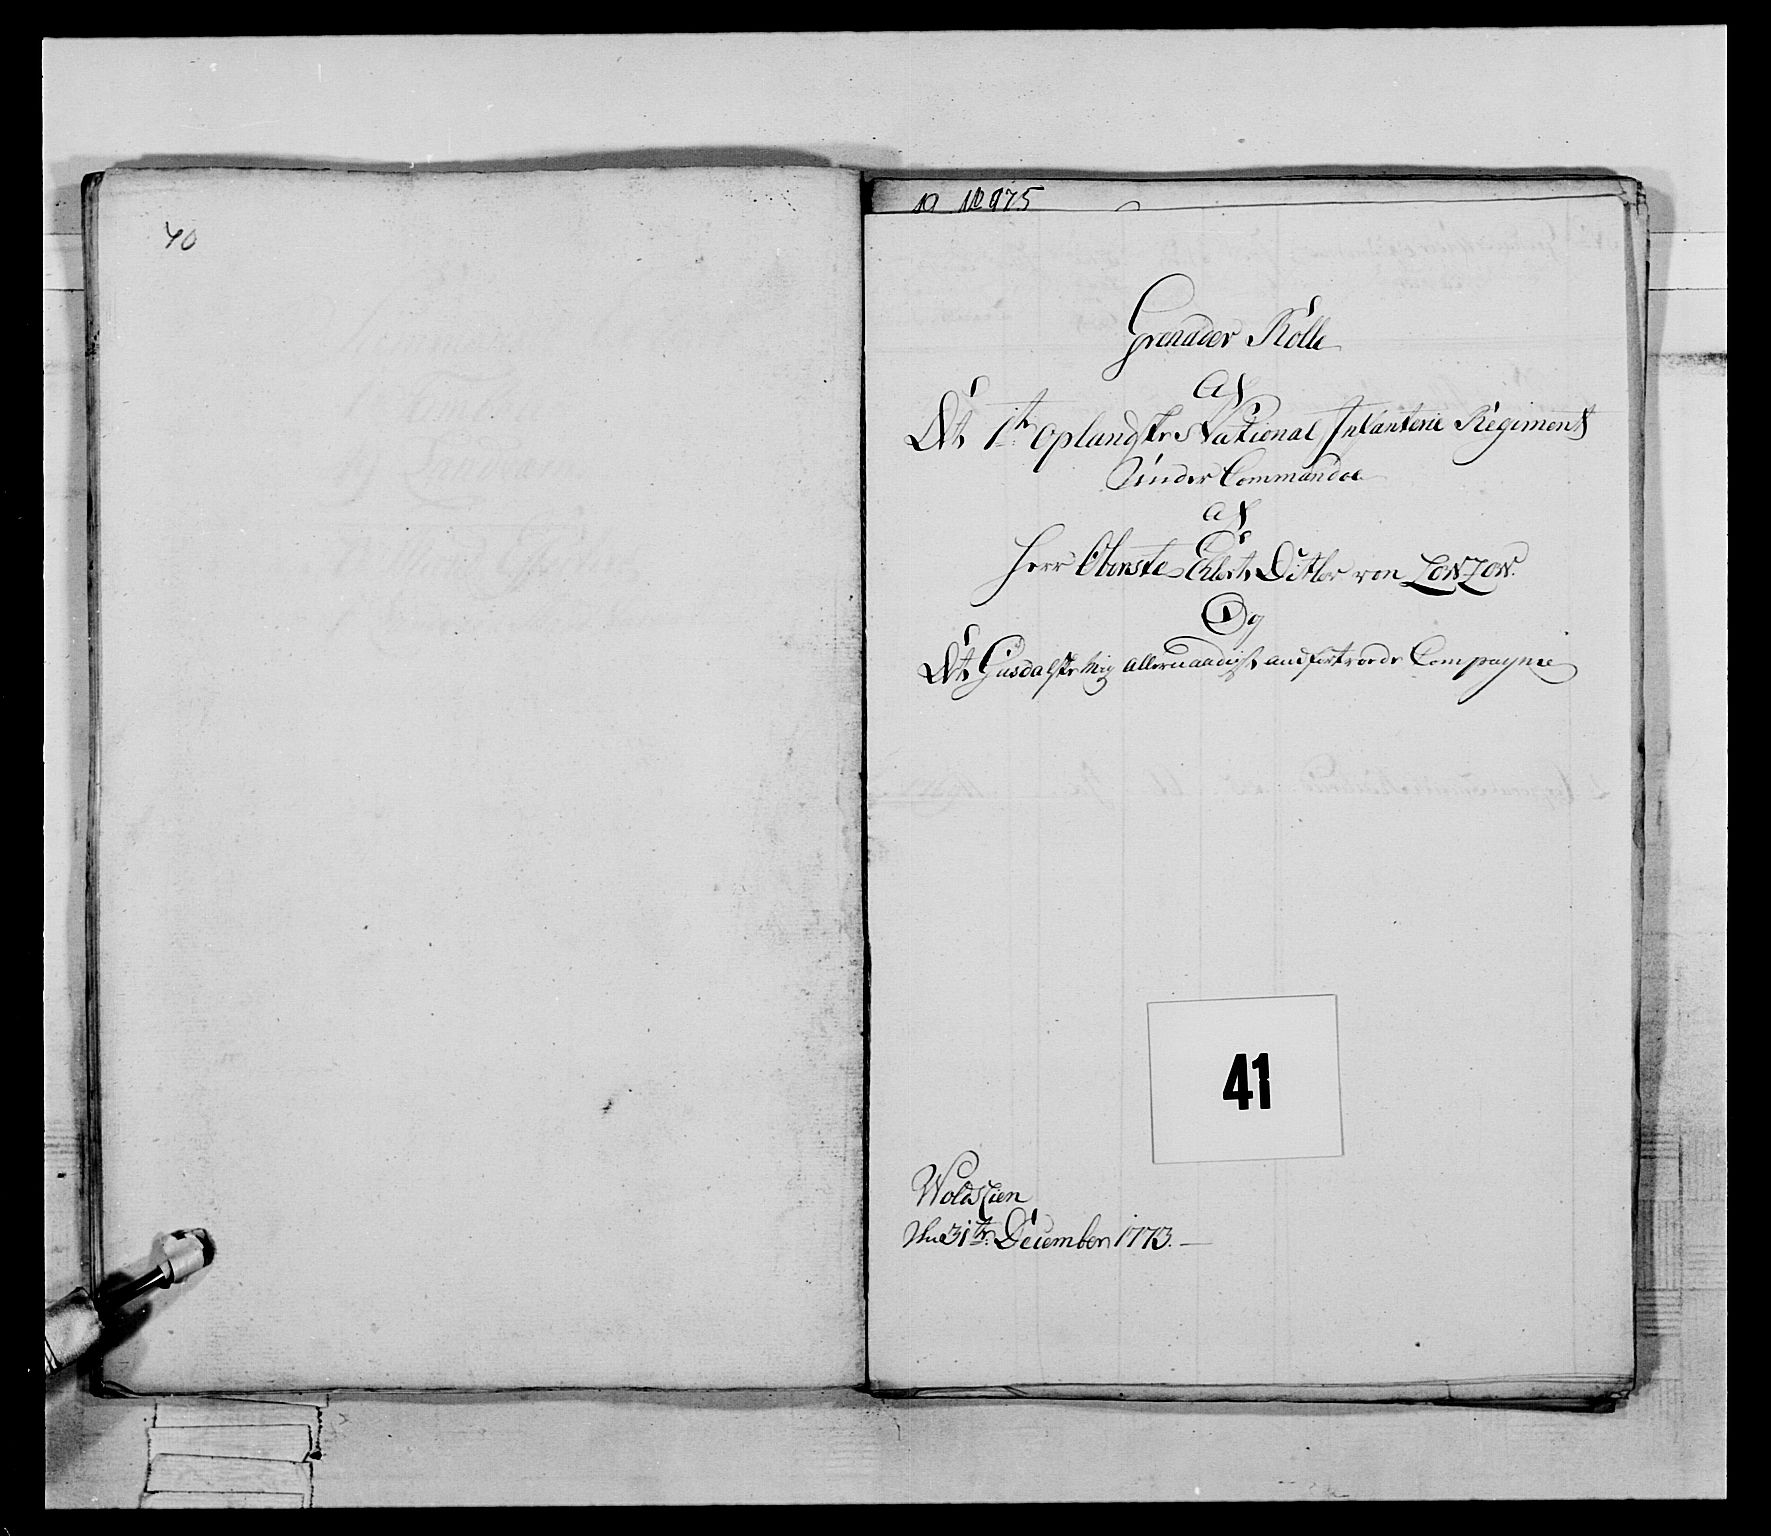 40
Grenader Rolle
Af
Det 1te Oplandske National Infanterie Regiment
Under Commandoe
af
Herr Oberste Ehlert Ditlev von Lowzow.
Og
Det Gusdalske Mig allernaadigst andfortroede Compagnie
41
Woldszien
den 31te December 1773.